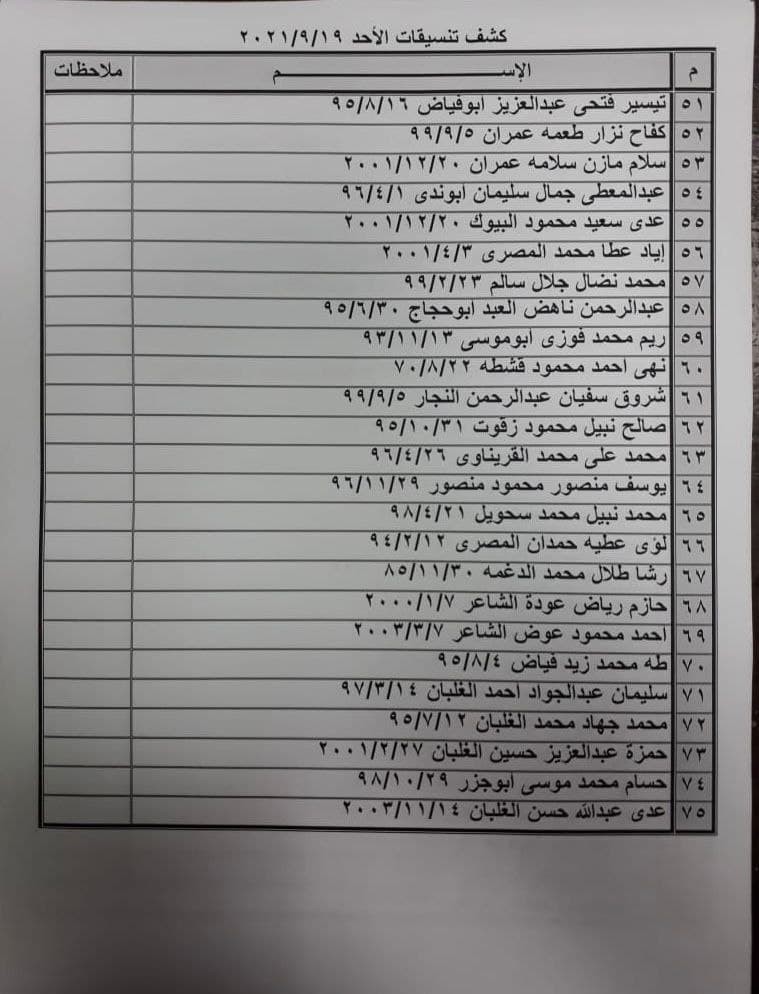 كشف تنسيقات الأحد ٢٠٢١/٩/١٩
م الإســـــــــم ملاحظات
٥١ تيسير فتحى عبدالعزيز ابوفياض ٩٥/٨/١٦
٥٢ كفاح نزار طعمه عمران ٩٩/٩/٥
٥٣ سلام مازن سلامه عمران ٢٠٠١/١٢/٢٠
٥٤ عبدالمعطى جمال سليمان ابوندى ٩٦/٤/١
٥٥ عدى سعيد محمود البيوك ٢٠٠١/١٢/٢٠
٥٦ إياد عطا محمد المصرى ٢٠٠١/٤/٣
٥٧ محمد نضال جلال سالم ٩٩/٢/٢٣
٥٨ عبدالرحمن ناهض العبد ابوحجاج ٩٥/٦/٣٠
٥٩ ريم محمد فوزى ابوموسى ٩٣/١١/١٣
٦٠ نهى احمد محمود قشطه ٧٠/٨/٢٢
٦١ شروق سفيان عبدالرحمن النجار ٩٩/٩/٥
٦٢ صالح نبيل محمود زقوت ٩٥/١٠/٣١
٦٣ محمد على محمد القريناوى ٩٦/٤/٢٦
٦٤ يوسف منصور محمود منصور ٩٦/١١/٢٩
٦٥ محمد نبيل محمد سحويل ٩٨/٤/٢١
٦٦ لؤى عطيه حمدان المصرى ٩٤/٢/١٢
٦٧ رشا طلال محمد الدغمه ٨٥/١١/٣٠
٦٨ حازم رياض عودة الشاعر ٢٠٠٠/١/٧
٦٩ احمد محمود عوض الشاعر ٢٠٠٣/٣/٧
٧٠ طه محمد زيد فياض ٩٥/٨/٤
٧١ سليمان عبدالجواد احمد الغلبان ٩٧/٣/١٤
٧٢ محمد جهاد محمد الغلبان ٩٥/٧/١٢
٧٣ حمزة عبدالعزيز حسين الغلبان ٢٠٠١/٢/٢٧
٧٤ حسام محمد موسى ابوجزر ٩٨/١٠/٢٩
٧٥ عدى عبدالله حسن الغلبان ٢٠٠٣/١١/١٤